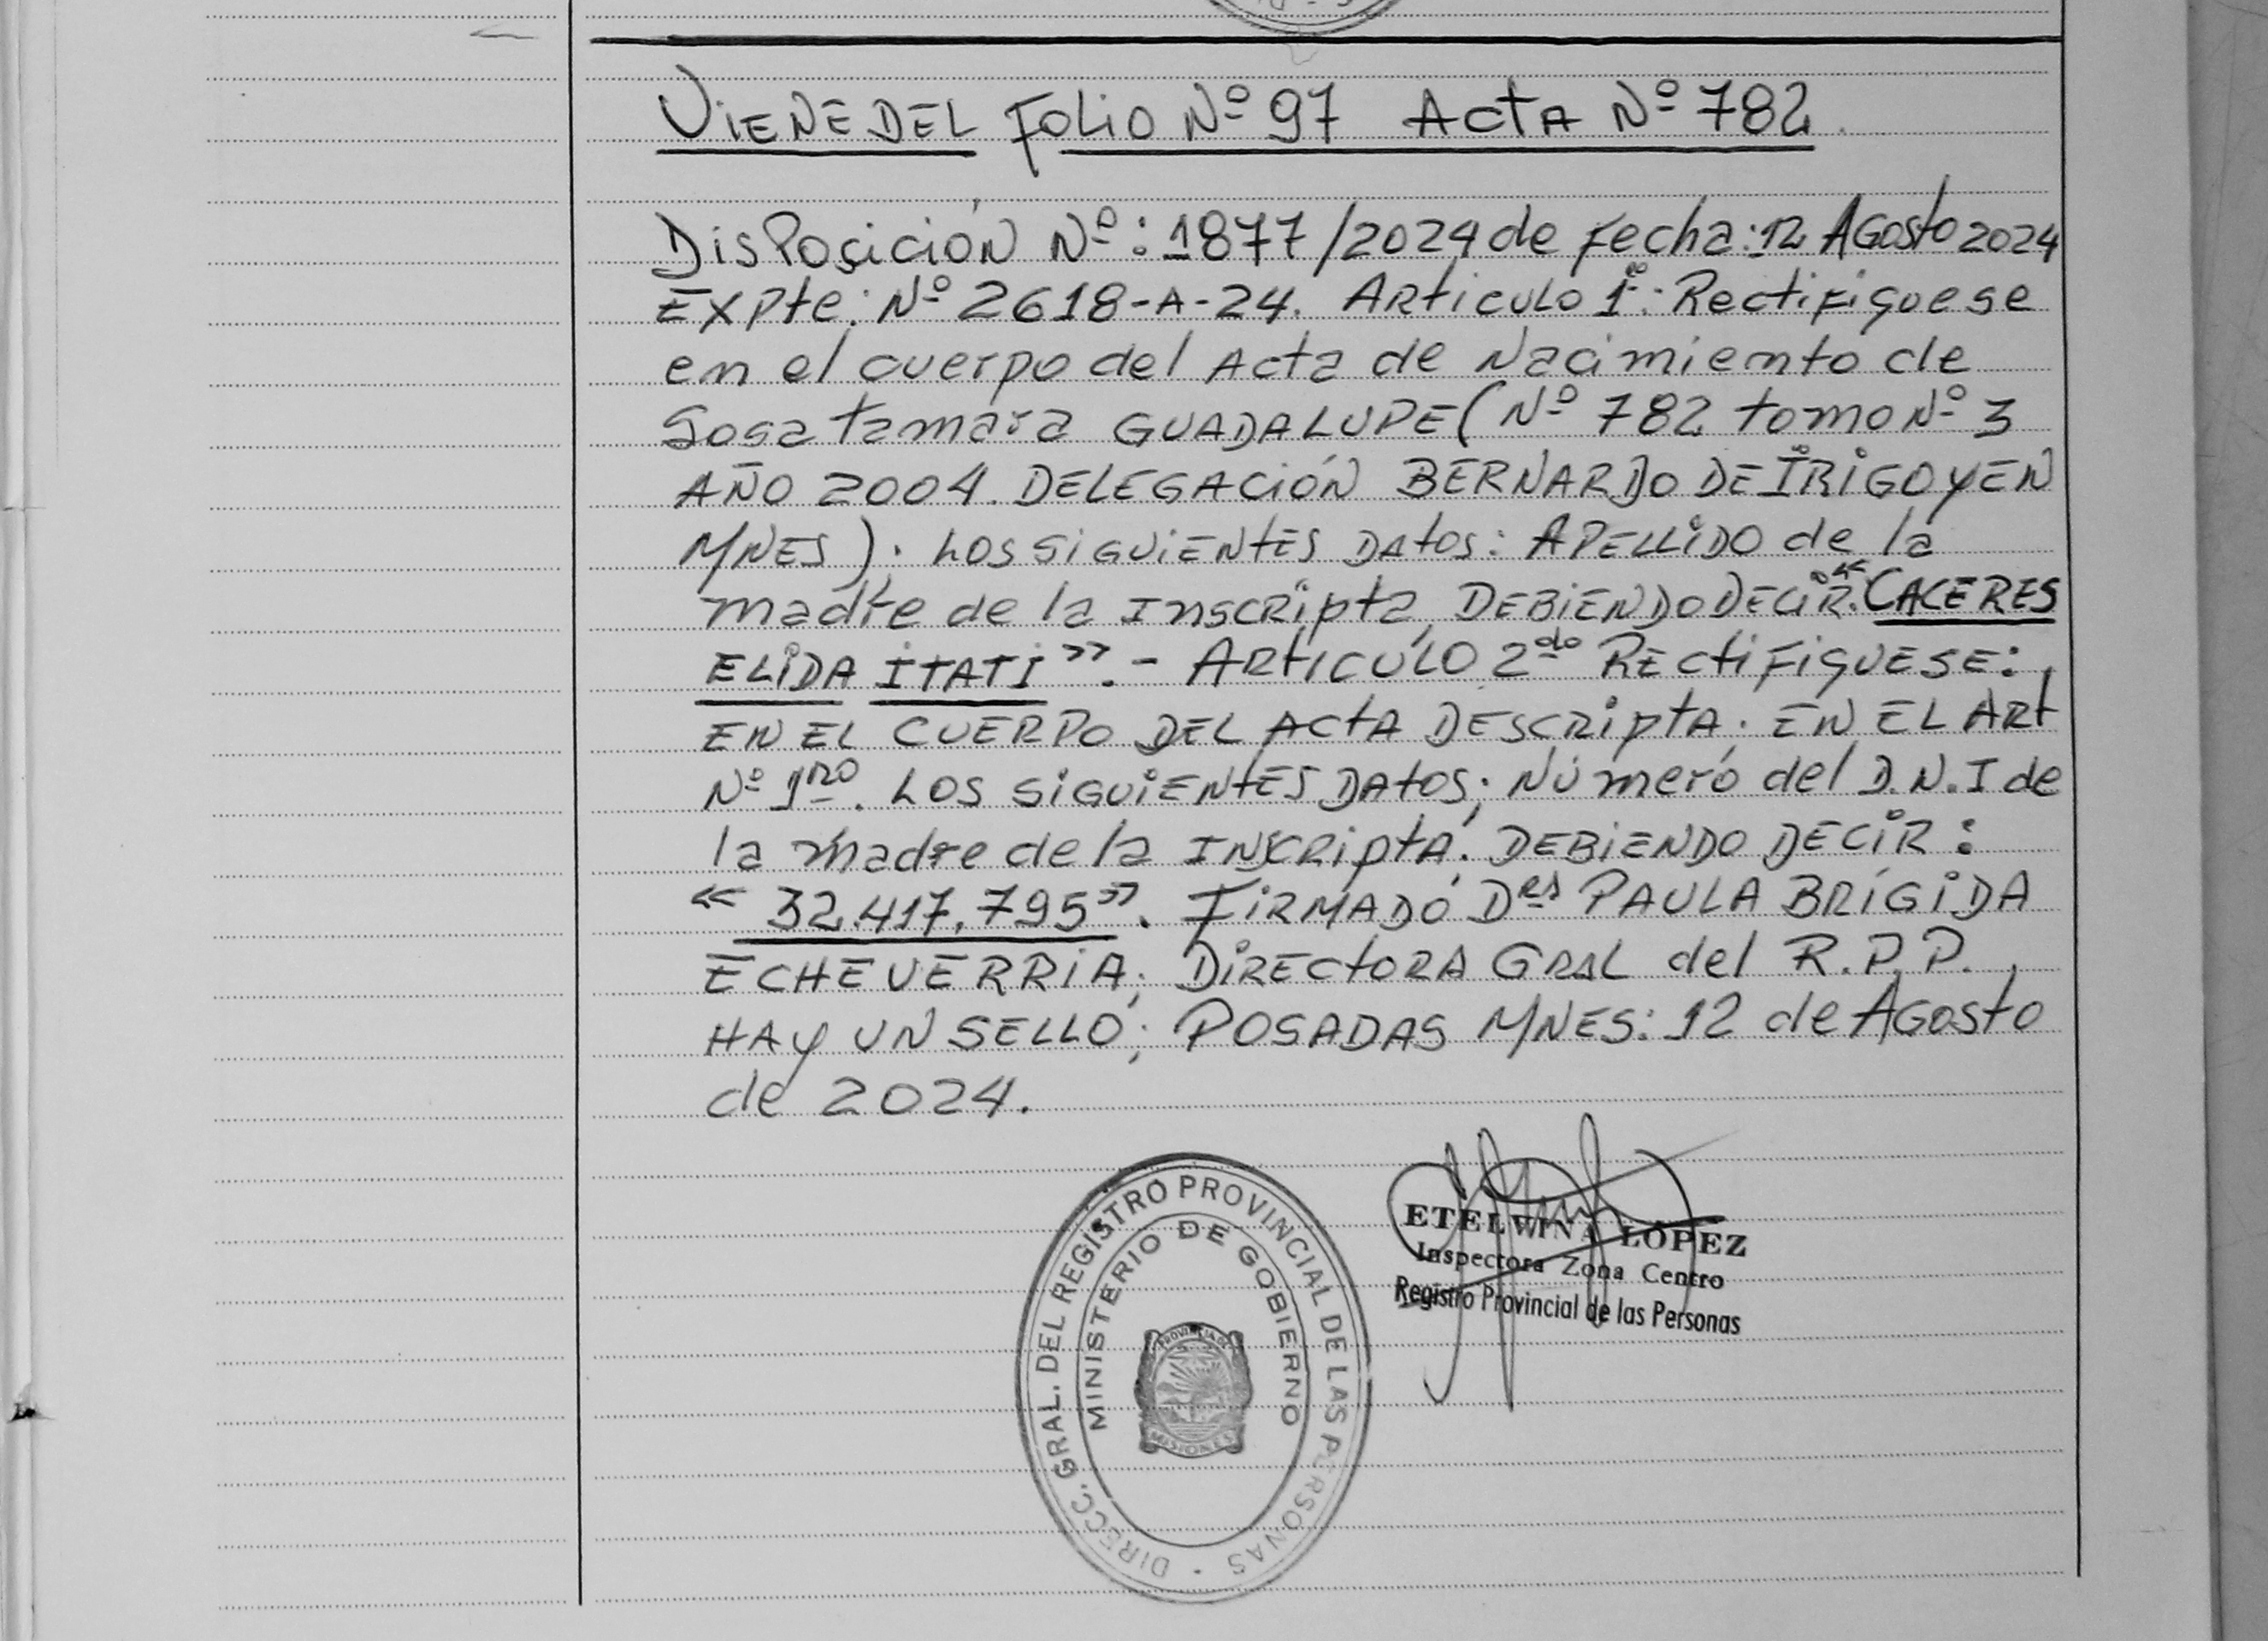 VIENE DEL FOLIO Nº 97 ACTA Nº 782
DISPOSICIÓN Nº: 1877/2024 de Fecha: 12 AGOSTO 2024
EXPte: Nº 2618-A-24. ARTICULO 1º: Rectifiquese
en el cuerpo del Acta de Nacimiento de
Sosa tamara GUADALUPE (Nº 782 tomo Nº 3
AÑO 2004. DELEGACIÓN BERNARDO DE IRIGOYEN
MNES). LOS SIGUIENTES DATOS: APELLIDO de la
madre de la INSCRIPTA, DEBIENDO DECIR: "CACERES
ELIDA ITATI". - ARTICULO 2do RECTIFIQUESE:
EN EL CUERPO DEL ACTA DESCRIPTA. EN EL ART
Nº 1ro. LOS SIGUIENTES DATOS; Número del D.N.I de
la madre de la INSCRIPTA. DEBIENDO DECIR:
"32.417.795". FIRMADO Dra PAULA BRÍGIDA
ECHEVERRIA; DIRECTORA GRAL del R.P.P.
HAY UN SELLO; POSADAS MNES: 12 de AGOSTO
de 2024.
DIRECC. GRAL. DEL REGISTRO PROVINCIAL DE LAS PERSONAS
MINISTERIO DE GOBIERNO
PROVINCIA DE
MISIONES
ETELWINA LÓPEZ
Inspectora Zona Centro
Registro Provincial de las Personas